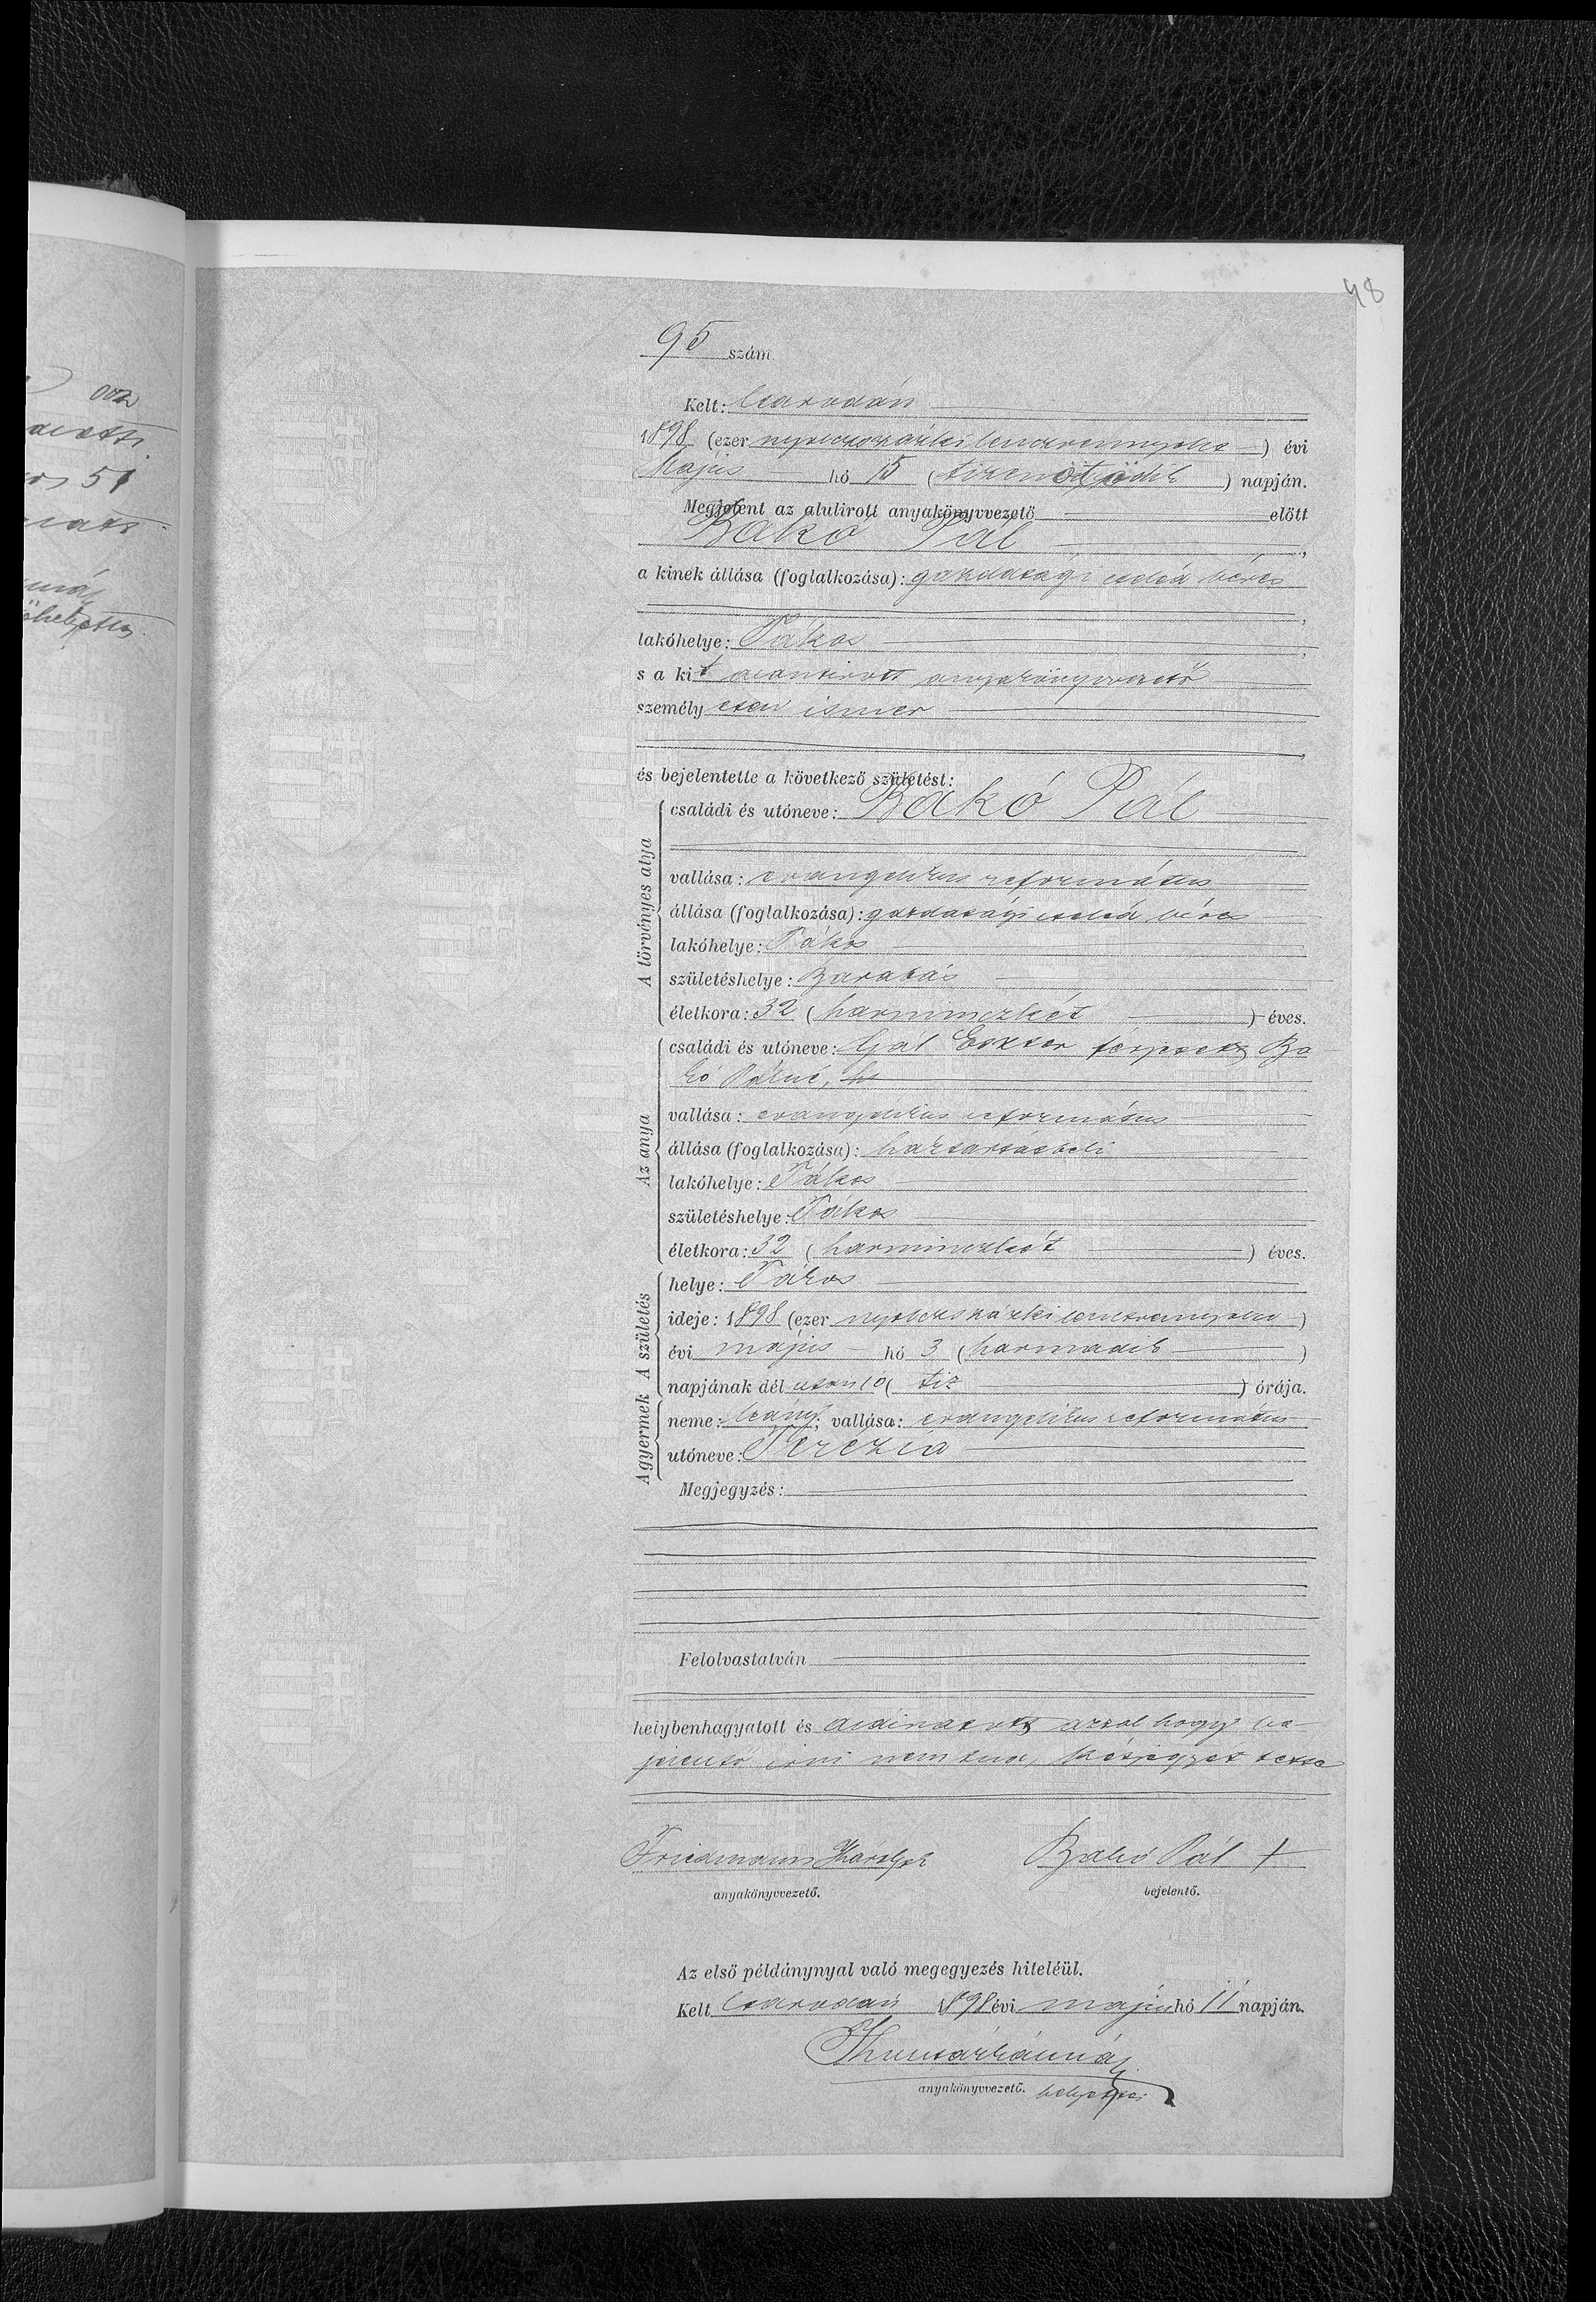 48
002
os 51
95 szám
Kelt: Csarodán
1898 (ezer nyolczszázkilenczvennyolcz) évi
Május hó 15 (tizenötödik) napján.
Megjelent az alulirott anyakönyvvezető előtt
Bakó Pál,
a kinek állása (foglalkozása): gazdasági cseléd béres
,
lakóhelye: Tákos,
s a kit alantirott anyakönyvvezető
személyesen ismer
,
és bejelentette a következő születést:
A törvényes atya
családi és utóneve: Bakó Pál
vallása: evangelikus református
állása (foglalkozása): gazdasági cseléd béres
lakóhelye: Tákos
születéshelye: Barabás
életkora: 32 (harminczkét) éves.
Az anya
családi és utóneve: Gál Eszter férjezett Ba
kó Pálné,
vallása: evangelikus református
állása (foglalkozása): háztartásbeli
lakóhelye: Tákos
születéshelye: Tákos
életkora: 32 (harminczkét) éves.
A születés
helye: Tákos
ideje: 1898 (ezer nyolczszázkilenczvennyolcz)
évi május hó 3 (harmadik)
napjának dél után 10 (tiz) órája.
A gyermek
neme: leány; vallása: evangelikus református
utóneve: Terézia
Megjegyzés:
Felolvastatván
helybenhagyatott és aláiratott azzal hogy be
jelentő irni nem tud, kézjegyét tette
Friedmann Károly Bakó Pál +
anyakönyvvezető. bejelentő.
Az első példánynyal való megegyezés hiteléül.
Kelt Csarodán 1898 évi május hó 11 napján.
anyakönyvvezető. helyettes